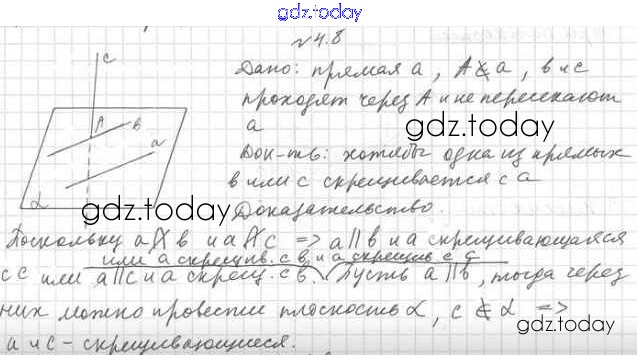 gdz.today
№4.8
Дано: прямая a, A∉a, b и c
проходят через A и не пересекают
a
gdz.today
Док-ть: хотябы одна из прямых
b или c скрещивается с a
gdz.today
Доказательство.
Поскольку a∦b и a∦c => a||b и a скрещивающаяся
или a скрещив. с b и a скрещив. с c
с c или a||c и a скрещ. с b. Пусть a||b, тогда через
них можно провести плоскость α, c ⊄ α =>
gdz.today
a и c - скрещивающиеся.
c
A
b
a
α